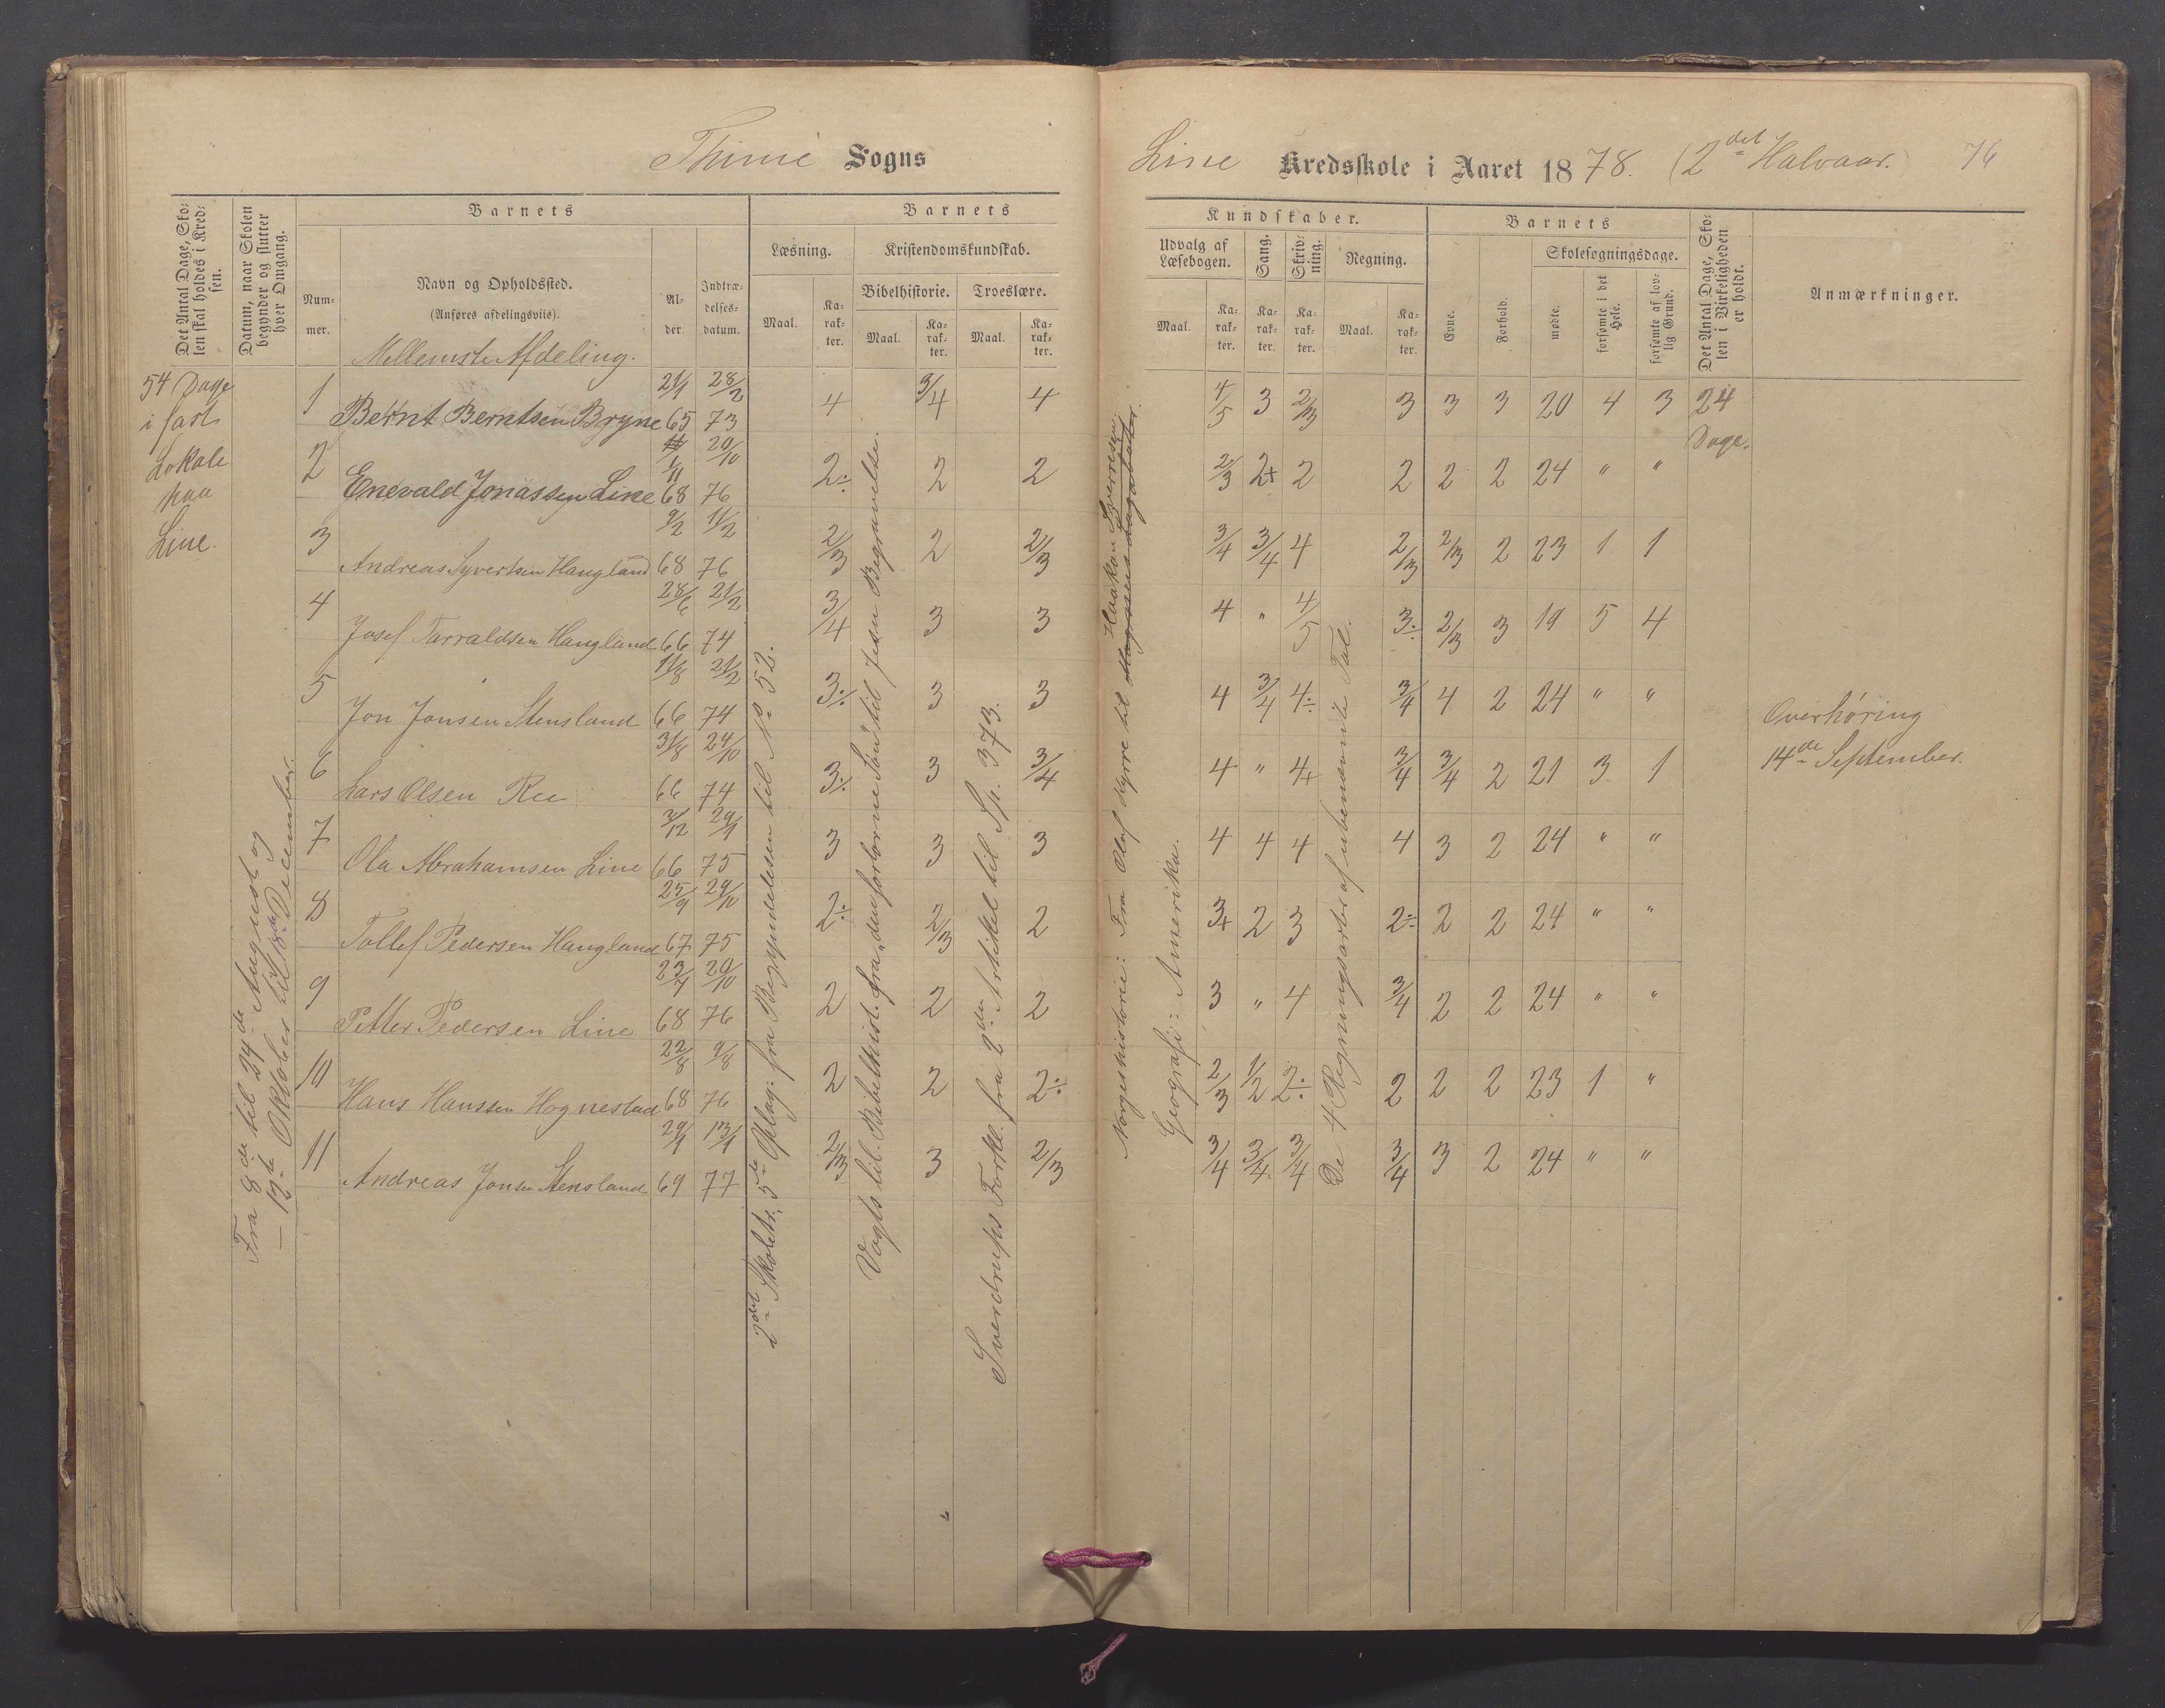 Thime Sogns
Line Kredsskole i Aaret 1878. (2det Halvaar.) 76
Det Antal Dage, Skolen skal holdes i Kredsen.
Datum, naar Skolen begynder og slutter hver Omgang.
Barnets
Nummer.
Navn og Opholdssted.
(Anføres afdelingsviis).
Mellemste Afdeling.
Alder.
Indtrædelsesdatum.
Barnets
Læsning.
Maal.
Karakter.
Kristendomskundskab.
Bibelhistorie.
Maal.
Karakter.
Troeslære.
Maal.
Karakter.
Kundskaber.
Udvalg af Læsebogen.
Maal.
Karakter.
Sang.
Karakter.
Skrivning.
Karakter.
Regning.
Maal.
Karakter.
Barnets
Evne.
Forhold.
Skolesøgningsdage.
mødte.
forsømte i det Hele.
forsømte af lovlig Grund.
Det Antal Dage, Skolen i Virkeligheden er holdt.
Anmærkninger.
54 Dage
i fast
Lokale
paa
Line.
Fra 8de til 24de August og
— 12te Oktober til 8de December.
1 Bernt Berntsen Bryne 21/1 65 28/2 73 4 3/4 4 4/5 3 2/3 3 3 3 20 4 3 24 Dage.
2 Enevald Jonassen Line 1/11 68 20/10 76 2÷ 2 2 2/3 2+ 2 2 2 2 24 " "
3 Andreas Syvertsen Haugland 9/2 68 11/2 76 2/3 2 2/3 3/4 3/4 4 2/3 2/3 2 23 1 1
4 Josef Tarraldsen Haugland 28/6 66 21/2 74 3/4 3 3 4 " 4/5 3÷ 2/3 3 19 5 4
5 Jon Jonsen Stensland 11/8 66 21/2 74 3÷ 3 3 4 3/4 4÷ 3/4 4 2 24 " "
6 Lars Olsen Ree 31/8 66 24/10 74 3÷ 3 3/4 4 " 4+ 3/4 3/4 2 21 3 1
7 Ola Abrahamsen Line 3/12 66 29/1 75 3 3 3 4 4 4 4 3 2 24 " "
8 Tollef Pedersen Haugland 25/9 67 29/10 75 2÷ 2/3 2 3+ 2 3 2÷ 2 2 24 " "
9 Petter Pedersen Line 23/7 68 20/10 76 2 2 2 3 " 4 3/4 2 2 24 " "
10 Hans Hanssen Hognestad 22/8 68 9/8 76 2 2 2÷ 2/3 1/2 2÷ 2 2 2 23 1 "
11 Andreas Jonsen Stensland 29/1 69 13/1 77 2/3 3 2/3 3/4 3/4 3/4 3/4 3 2 24 " "
2det Skoletr. 5te Oplag: fra Begyndelsen til No 52.
Vogts lil. Bibelhist. fra „den fortorne Søn" til Jesu Begravelse.
Sverdrups Forkl. fra 2den Artikel til Sp. 373.
Norgeshistorie: Fra Olaf Kyrre til Magnus Lagabøter. Haakon Sverresøn
Geografi: Amerika.
De 4 Regningsarter af ubenævnte Tal.
Overhøring
14de September.